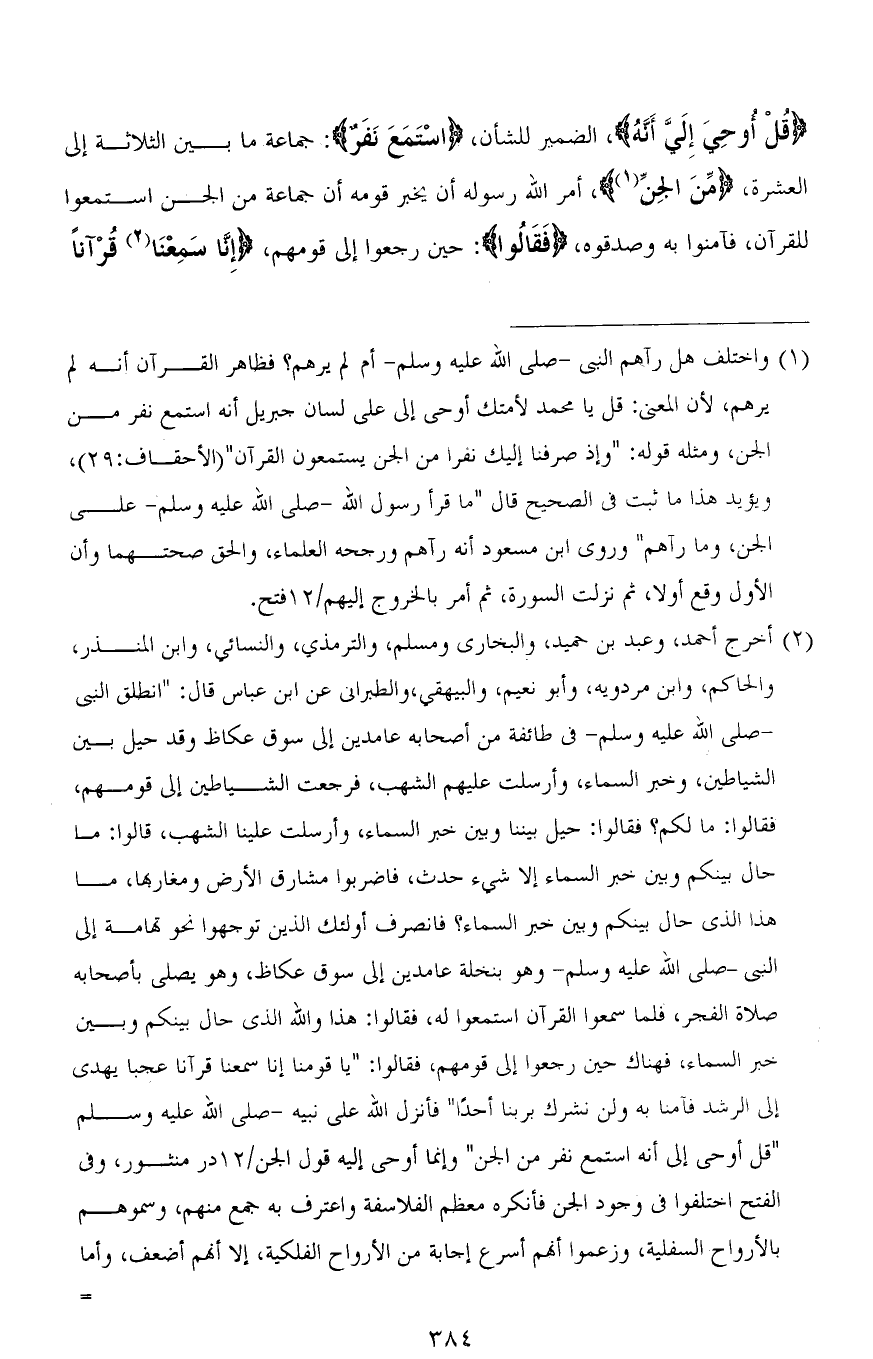 ﴿قُلْ أُوحِيَ إِلَيَّ أَنَّهُ﴾، الضمير للشأن، ﴿اسْتَمَعَ نَفَرٌ﴾: جماعة ما بين الثلاثة إلى
العشرة، ﴿مِّنَ الجِنِّ(١)﴾، أمر الله رسوله أن يخبر قومه أن جماعة من الجن استمعوا
للقرآن، فآمنوا به وصدقوه، ﴿فَقَالُوا﴾: حين رجعوا إلى قومهم، ﴿إِنَّا سَمِعْنَا(٢) قُرْآناً
(١) واختلف هل رآهم النبى -صلى الله عليه وسلم- أم لم يرهم؟ فظاهر القرآن أنه لم
يرهم، لأن المعنى: قل يا محمد لأمتك أوحى إلى على لسان جبريل أنه استمع نفر من
الجن، ومثله قوله: "وإذ صرفنا إليك نفرا من الجن يستمعون القرآن"(الأحقاف:٢٩)،
ويؤيد هذا ما ثبت فى الصحيح قال "ما قرأ رسول الله -صلى الله عليه وسلم- على
الجن، وما رآهم" وروى ابن مسعود أنه رآهم ورجحه العلماء، والحق صحتهما وأن
الأول وقع أولا، ثم نزلت السورة، ثم أمر بالخروج إليهم/١٢فتح.
(٢) أخرج أحمد، وعبد بن حميد، والبخارى ومسلم، والترمذي، والنسائي، وابن المنذر،
والحاكم، وابن مردويه، وأبو نعيم، والبيهقي،والطبرانى عن ابن عباس قال: "انطلق النبى
-صلى الله عليه وسلم- فى طائفة من أصحابه عامدين إلى سوق عكاظ وقد حيل بين
الشياطين، وخبر السماء، وأرسلت عليهم الشهب، فرجعت الشياطين إلى قومهم،
فقالوا: ما لكم؟ فقالوا: حيل بيننا وبين خبر السماء، وأرسلت علينا الشهب، قالوا: ما
حال بينكم وبين خبر السماء إلا شيء حدث، فاضربوا مشارق الأرض ومغاربها، ما
هذا الذى حال بينكم وبين خبر السماء؟ فانصرف أولئك الذين توجهوا نحو تهامة إلى
النبى -صلى الله عليه وسلم- وهو بنخلة عامدين إلى سوق عكاظ، وهو يصلى بأصحابه
صلاة الفجر، فلما سمعوا القرآن استمعوا له، فقالوا: هذا والله الذى حال بينكم وبين
خبر السماء، فهناك حين رجعوا إلى قومهم، فقالوا: "يا قومنا إنا سمعنا قرآنا عجبا يهدى
إلى الرشد فآمنا به ولن نشرك بربنا أحدًا" فأنزل الله على نبيه -صلى الله عليه وسلم
"قل أوحى إلى أنه استمع نفر من الجن" وإنما أوحى إليه قول الجن/١٢در منثور، وفى
الفتح اختلفوا فى وجود الجن فأنكره معظم الفلاسفة واعترف به جمع منهم، وسموهم
بالأرواح السفلية، وزعموا أنهم أسرع إجابة من الأرواح الفلكية، إلا أنهم أضعف، وأما
=
٣٨٤